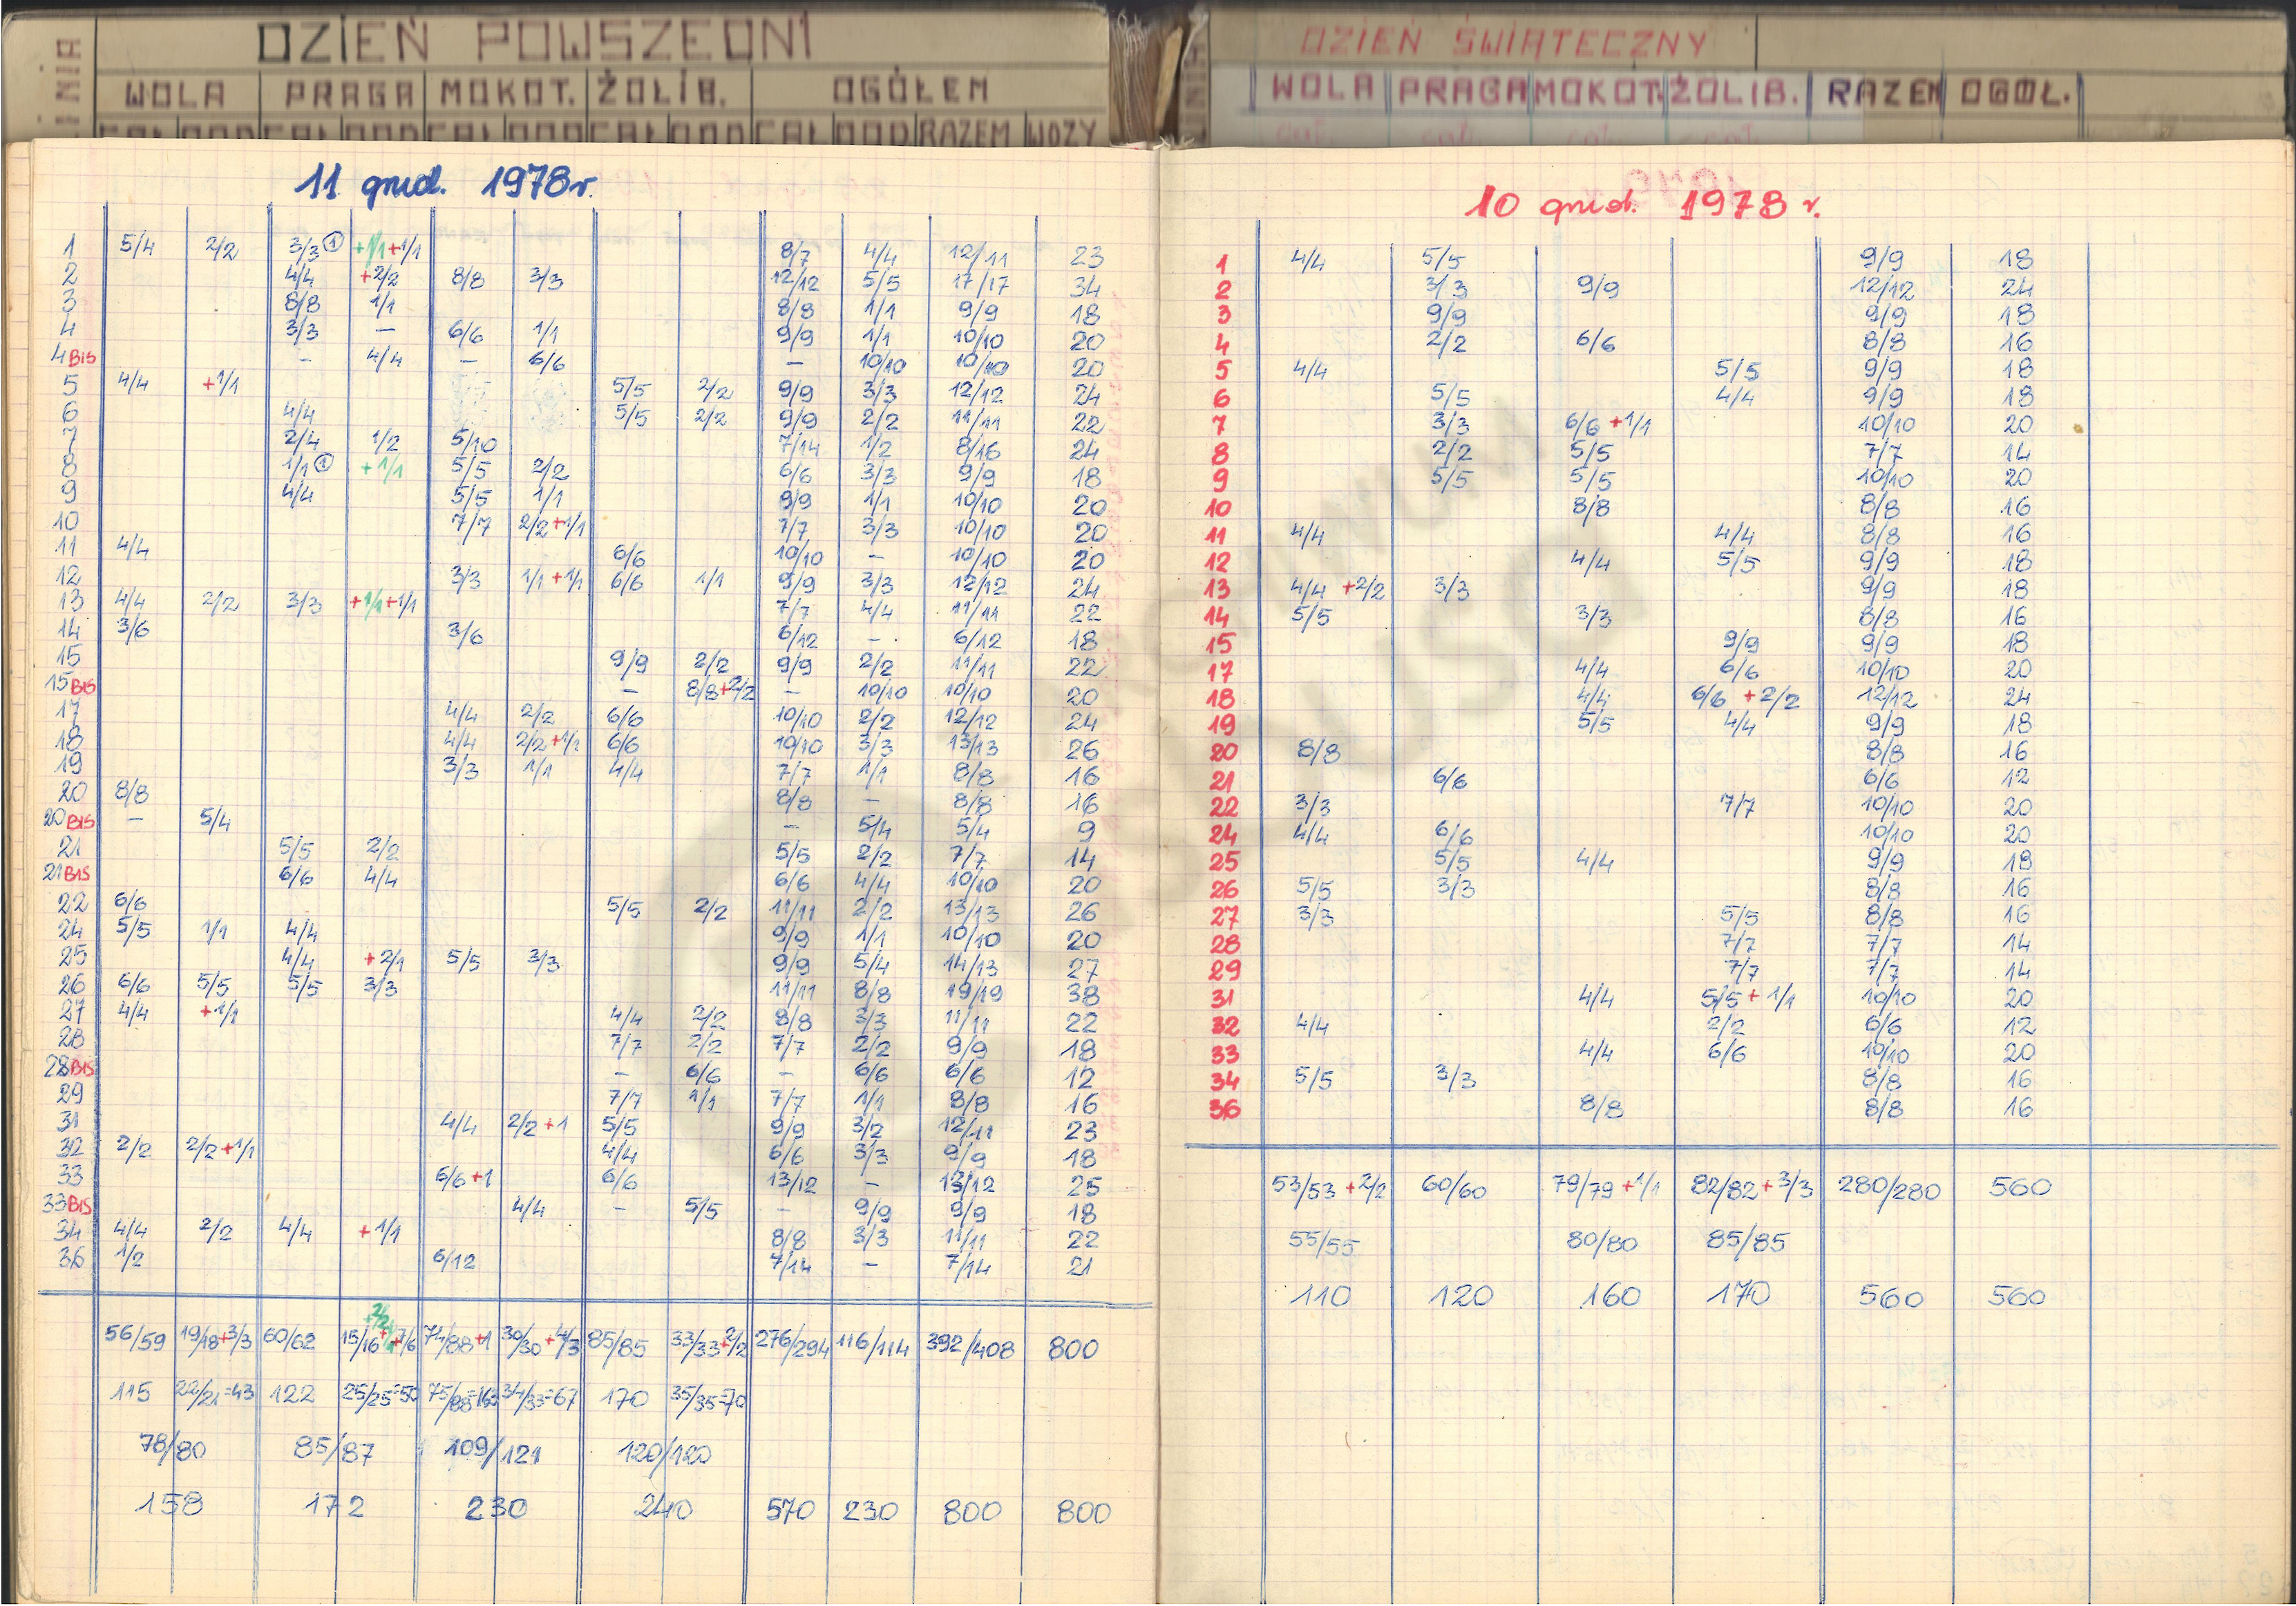 DZIEŃ POWSZEDNI
LINIA WOLA PRAGA MOKOT. ŻOLIB. OGÓŁEM
CAŁ DOD CAŁ DOD CAŁ DOD CAŁ DOD CAŁ DOD RAZEM WOZY
11 grud. 1978r.
1 5/4 2/2 3/3 ① +1/1+1/1 8/7 4/4 12/11 23
2 4/4 +2/2 8/8 3/3 12/12 5/5 17/17 34
3 8/8 1/1 8/8 1/1 9/9 18
4 3/3 – 6/6 1/1 9/9 1/1 10/10 20
4 BIS – 4/4 – 6/6 – 10/10 10/10 20
5 4/4 +1/1 5/5 2/2 9/9 3/3 12/12 24
6 4/4 5/5 2/2 9/9 2/2 11/11 22
7 2/4 1/2 5/10 7/14 1/2 8/16 24
8 1/1 ① +1/1 5/5 2/2 6/6 3/3 9/9 18
9 4/4 5/5 1/1 9/9 1/1 10/10 20
10 7/7 2/2+1/1 7/7 3/3 10/10 20
11 4/4 6/6 10/10 – 10/10 20
12 3/3 1/1+1/1 6/6 1/1 9/9 3/3 12/12 24
13 4/4 2/2 3/3 +1/1+1/1 7/7 4/4 11/11 22
14 3/6 3/6 6/12 – 6/12 18
15 9/9 2/2 9/9 2/2 11/11 22
15 BIS – 8/8+2/2 – 10/10 10/10 20
17 4/4 2/2 6/6 10/10 2/2 12/12 24
18 4/4 2/2+1/1 6/6 10/10 3/3 13/13 26
19 3/3 1/1 4/4 7/7 1/1 8/8 16
20 8/8 8/8 – 8/8 16
20 BIS – 5/4 – 5/4 5/4 9
21 5/5 2/2 5/5 2/2 7/7 14
21 BIS 6/6 4/4 6/6 4/4 10/10 20
22 6/6 5/5 2/2 11/11 2/2 13/13 26
24 5/5 1/1 4/4 9/9 1/1 10/10 20
25 4/4 +2/1 5/5 3/3 9/9 5/4 14/13 27
26 6/6 5/5 5/5 3/3 11/11 8/8 19/19 38
27 4/4 +1/1 4/4 2/2 8/8 3/3 11/11 22
28 7/7 2/2 7/7 2/2 9/9 18
28 BIS – 6/6 – 6/6 6/6 12
29 7/7 1/1 7/7 1/1 8/8 16
31 4/4 2/2+1 5/5 9/9 3/2 12/11 23
32 2/2 2/2+1/1 4/4 6/6 3/3 9/9 18
33 6/6+1 6/6 13/12 – 13/12 25
33 BIS 4/4 – 5/5 – 9/9 9/9 18
34 4/4 2/2 4/4 +1/1 8/8 3/3 11/11 22
36 1/2 6/12 7/14 – 7/14 21
56/59 19/18+3/3 60/62 15/16+2/2+7/6 74/88+1 30/30+4/3 85/85 33/33+2/2 276/294 116/114 392/408 800
115 22/21=43 122 25/25=50 75/88=163 34/33=67 170 35/35=70
78/80 85/87 109/121 120/120
158 172 230 240 570 230 800 800
DZIEŃ ŚWIĄTECZNY
WOLA PRAGA MOKOT. ŻOLIB. RAZEM OGÓŁ.
10 grud. 1978 r.
1 4/4 5/5 9/9 18
2 3/3 9/9 12/12 24
3 9/9 9/9 18
4 2/2 6/6 8/8 16
5 4/4 5/5 9/9 18
6 5/5 4/4 9/9 18
7 3/3 6/6 +1/1 10/10 20
8 2/2 5/5 7/7 14
9 5/5 5/5 10/10 20
10 8/8 8/8 16
11 4/4 4/4 8/8 16
12 4/4 5/5 9/9 18
13 4/4 +2/2 3/3 9/9 18
14 5/5 3/3 8/8 16
15 9/9 9/9 18
17 4/4 6/6 10/10 20
18 4/4 6/6 +2/2 12/12 24
19 5/5 4/4 9/9 18
20 8/8 8/8 16
21 6/6 6/6 12
22 3/3 7/7 10/10 20
24 4/4 6/6 10/10 20
25 5/5 4/4 9/9 18
26 5/5 3/3 8/8 16
27 3/3 5/5 8/8 16
28 7/7 7/7 14
29 7/7 7/7 14
31 4/4 5/5+1/1 10/10 20
32 4/4 2/2 6/6 12
33 4/4 6/6 10/10 20
34 5/5 3/3 8/8 16
36 8/8 8/8 16
53/53 +2/2 60/60 79/79 +1/1 82/82+3/3 280/280 560
55/55 80/80 85/85
110 120 160 170 560 560